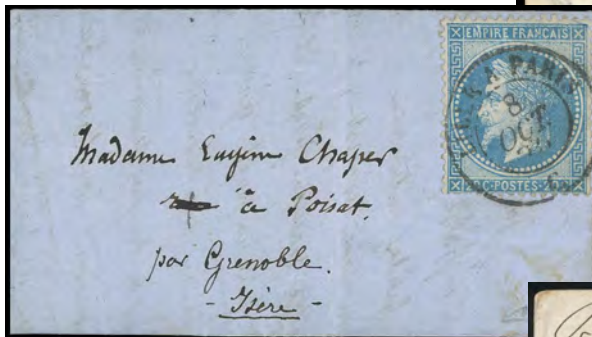 EMPIRE FRANÇAIS
PARIS
8
OCT
POSTES
Madame Eugène Chaper
à Poisat.
par Grenoble.
- Isère -